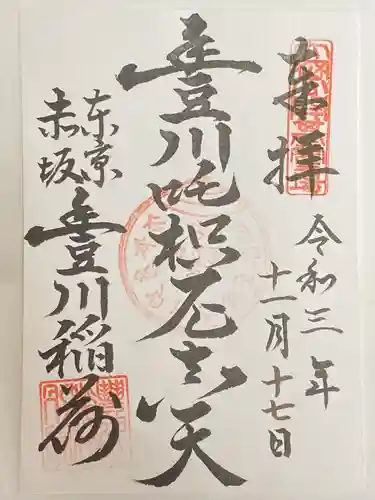 奉拝
令和三年
十一月十七日
豊川吒枳尼真天
東京
赤坂
豊川稲荷